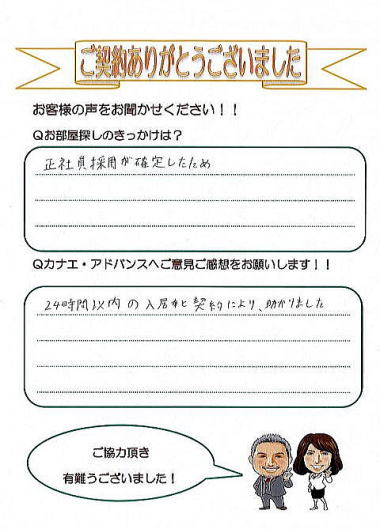 ご契約ありがとうございました
お客様の声をお聞かせください！！
Qお部屋探しのきっかけは？
正社員採用が確定したため
Qカナエ・アドバンスへご意見ご感想をお願いします！！
24時間以内の入居と契約により、助かりました
ご協力頂き
有難うございました！